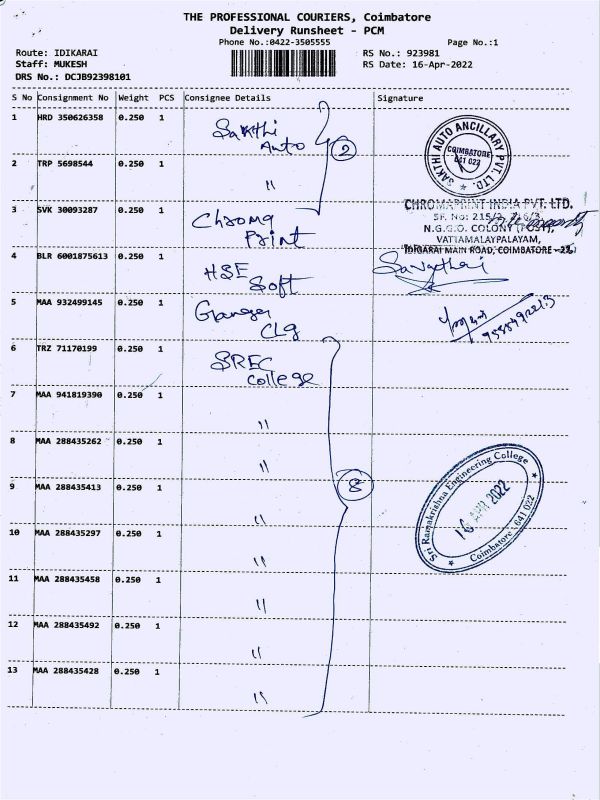 THE PROFESSIONAL COURIERS, Coimbatore
Delivery Runsheet - PCM
Phone No.:0422-3505555 Page No.:1
Route: IDIKARAI RS No.: 923981
Staff: MUKESH RS Date: 16-Apr-2022
DRS No.: DCJB92398101
S No Consignment No Weight PCS Consignee Details Signature
1 HRD 350626358 0.250 1 Sakthi Auto
2
SAKTHI AUTO ANCILLARY PVT. LTD.
COIMBATORE
641 022
2 TRP 5698544 0.250 1 "
3 SVK 30093287 0.250 1 Chroma Print
CHROMAPRINT INDIA PVT. LTD.
SF. No: 215/2, 216/3,
N.G.G.O. COLONY (POST),
VATTAMALAYPALAYAM,
IDIGARAI MAIN ROAD, COIMBATORE -22.
4 BLR 6001875613 0.250 1 HSE Soft
5 MAA 932499145 0.250 1 Clg
6 TRZ 71170199 0.250 1 SREC College
7 MAA 941819390 0.250 1 "
8 MAA 288435262 0.250 1 "
8
Sri Ramakrishna Engineering College
16 APR 2022
Coimbatore - 641 022
9 MAA 288435413 0.250 1 "
10 MAA 288435297 0.250 1 "
11 MAA 288435458 0.250 1 "
12 MAA 288435492 0.250 1 "
13 MAA 288435428 0.250 1 "